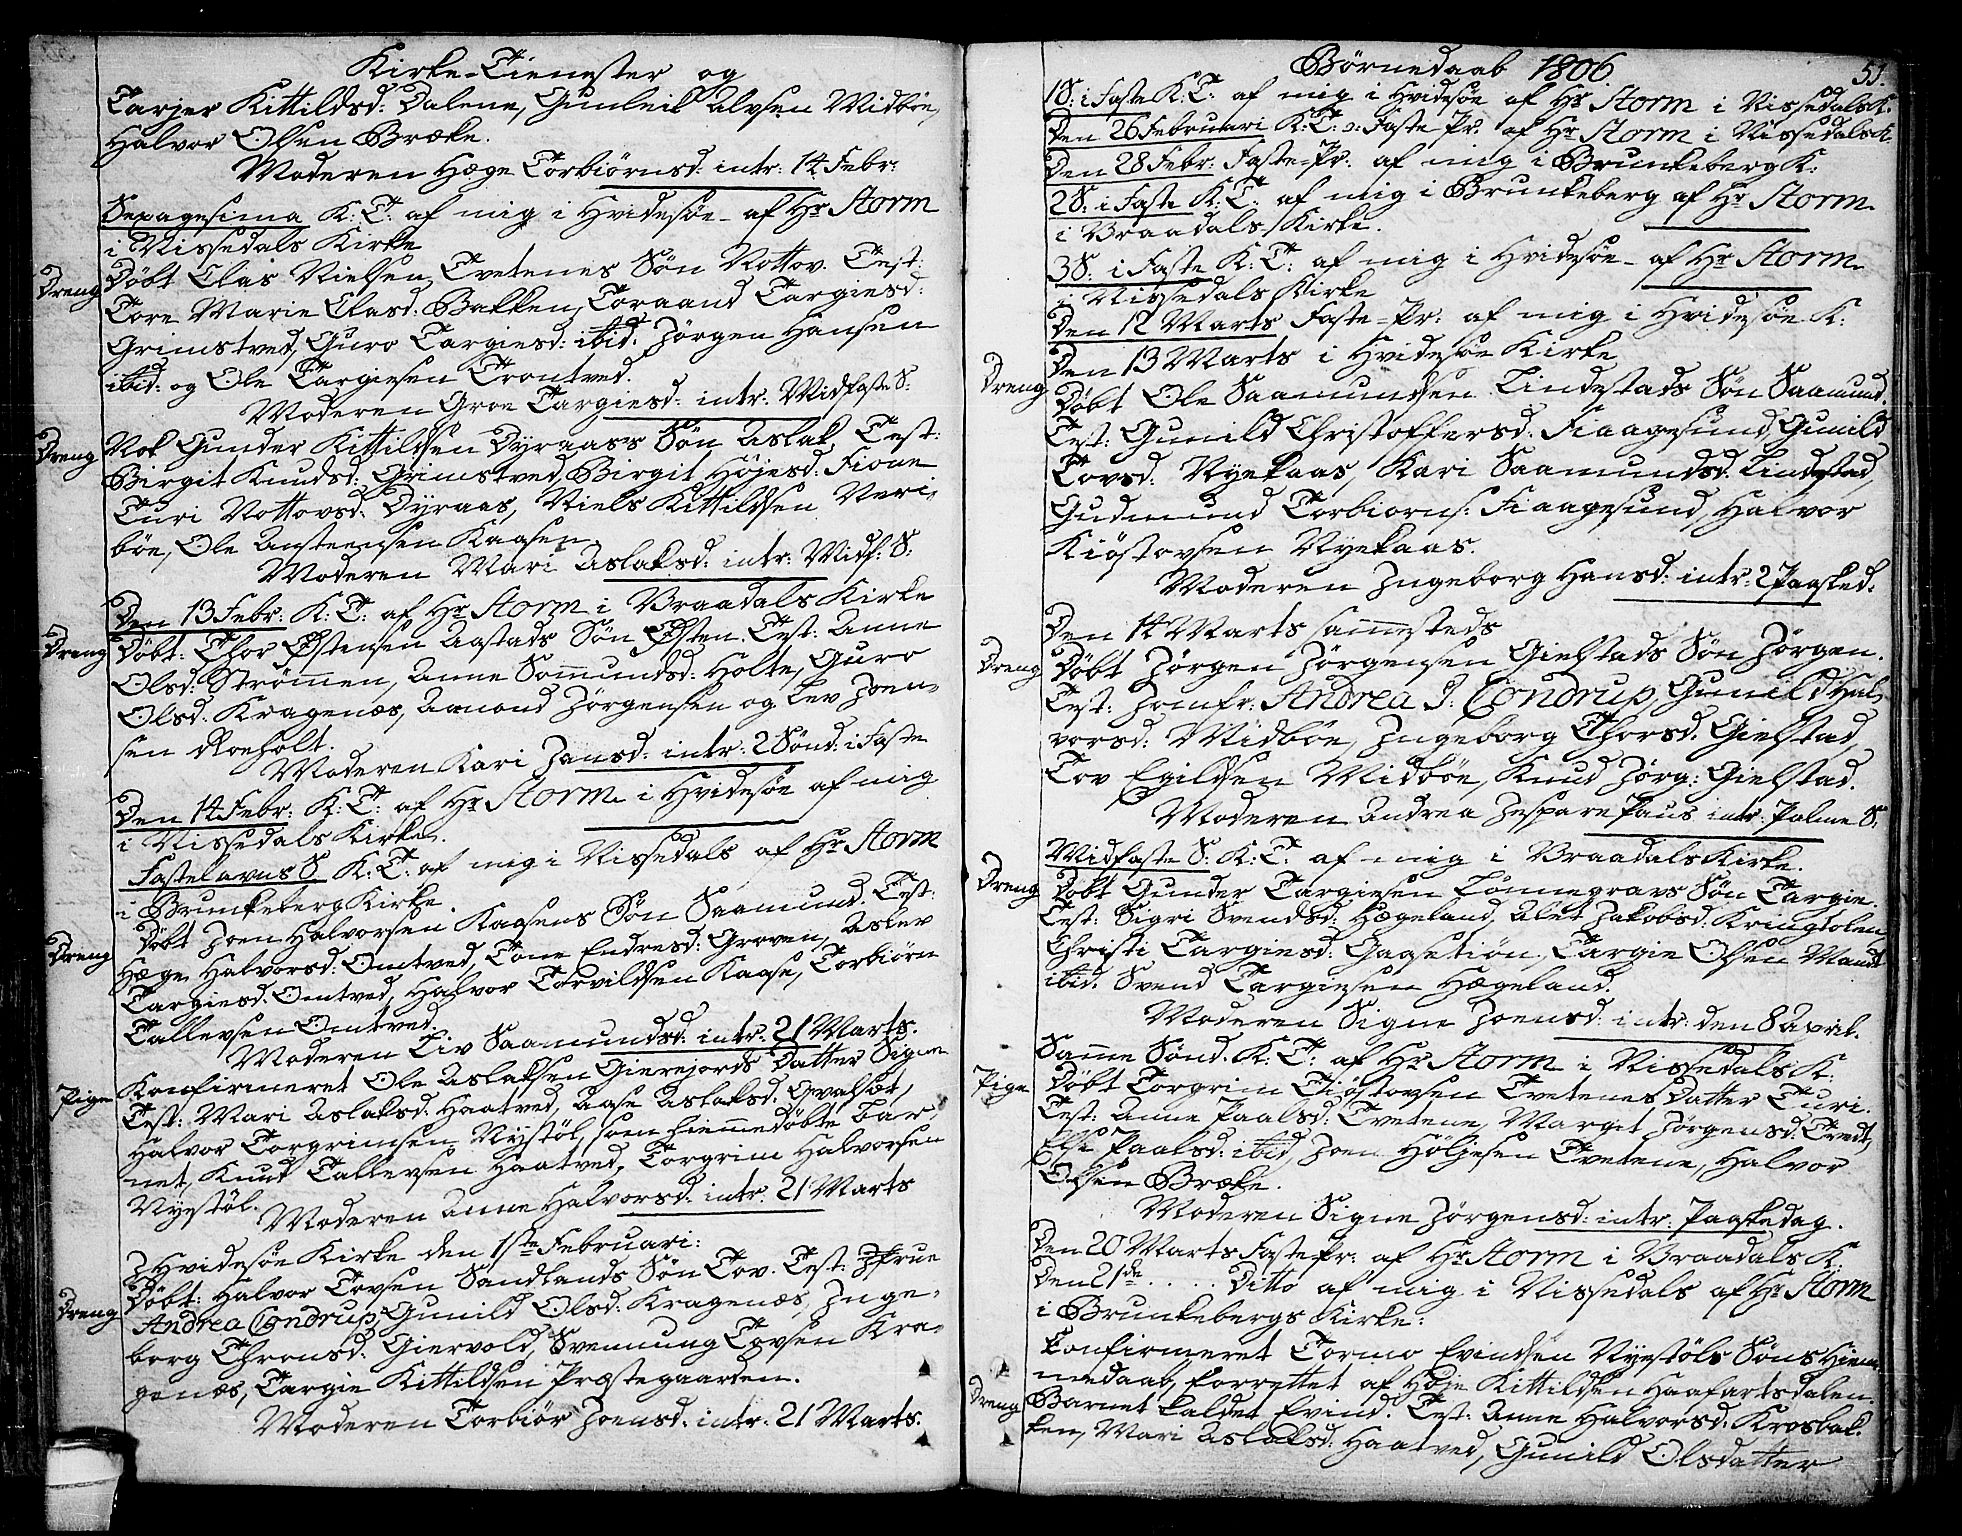 Kirke-Tienester og
Tarjer Kittildsd: Dalene, Gunleik Alvsen Midbøe,
Halvor Olsen Bræke.
Moderen Hæge Torbiørnsd: intr: 14 Febr:
Sexagesima K: T: af mig i Hvidesøe - af Hr Storm
i Nissedals Kirke
Dreng Døbt Clas Nielsen Tvetenes Søn Nottov. Test:
Tore Marie Clasd: Bakken, Toraand Targiesd:
Grimstved, Guro Targiesd: ibid. Jørgen Hansen
ibid: og Ole Targiesen Trontved.
Moderen Groe Targiesd: intr: Midfaste S:
Dreng Nok Gunder Kittildsen Dyraas's Søn Aslak, Test:
Birgit Knudsd: Grimstved, Birgit Høiesd: Fione
Turi Nottovsd: Dyraas, Niels Kittildsen Neri-
bøe, Ole Ansteensen Kaasen
Moderen Mari Aslaksd: intr: Midf: S:
Den 13 Febr: K: T: af Hr Storm i Vraadals Kirke
Dreng Døbt: Thor Østensen Aastads Søn Østen. Test: Anne
Olsd: Strømmen, Anne Somundsd: Holte, Guro
Olsd: Kragenæs, Amond Jørgensen og Lev Joen-
sen Roeholt.
Moderen Kari Jansd: intr: 2 Sønd: i Faste
Den 14 Febr: K: T: af Hr Storm i Hvidesøe af mig
i Nissedals Kirke.
Fastelavns S. K: T: af mig i Nissedals af Hr Storm
i Brunkeberg Kirke.
Dreng Døbt Joen Halvorsen Kaasens Søn Saamund. Test:
Hæge Halvorsd: Omtved, Tone Endresd: Groven, Aslev
Targiesd: Omtved, Halvor Torvildsen Kaase, Torbiørn
Tallevsen Omtved.
Moderen Liv Saamundsd: intr: 21 Marts.
Pige Konfirmeret Ole Aslaksen Gierejords Datter Signe
Test: Mari Aslaksd: Haatved, Aase Aslaksd. Qvalsæt,
Halvor Torgrimsen Nystøl, som hiemmedøbte Bar-
net, Knud Tallevsen Haatved, Torgrim Halvorsen
Nystøl.
Moderen Anne Halvorsd: intr: 21 Marts
I Hvidesøe Kirke den 1ste Februari:
Dreng Døbt: Halvor Tovsen Sandlands Søn Tov. Test: Frue
Andrea Condrup, Gunild Olsd: Kragenæs, Inge-
borg Thronsd: Giervold, Svennung Tovsen Kra-
genæs, Targie Kittildsen Præstegaarden.
Moderen Torbiør Joensd: intr: 21 Marts.
Børnedaab 1806
51.
1 S: i Faste K: T: af mig i Hvidesøe af Hr Storm i Nissedals K.
Den 26 Februari K: T: o: Faste-Pr: af Hr Storm i Nissedals K
Den 28 Febr: Faste-Pr: af mig i Brunkeberg K:
2 S: i Faste K: T: af mig i Brunkeberg af Hr Storm
i Vraadals Kirke.
3 S: i Faste K: T: af mig i Hvidesøe - af Hr Storm
i Nissedals Kirke
Den 12 Marts Faste-Pr: af mig i Hvidesøe K:
Den 13 Marts i Hvidesøe Kirke
Dreng Døbt Ole Saamundsen Lindestads Søn Saamund.
Test: Gunild Christoffersd: Fiaagesund, Gunild
Tovsd: Nyekaas, Kari Saamundsd: Lindestad,
Gudmund Torbiorns: Fiaagesund, Halvor
Kiøstovsen Nyekaas.
Moderen Ingeborg Hansd: intr: 2 Paasked:
Den 14 Marts sammesteds
Dreng Døbt Jørgen Jørgensen Gielstads Søn Jørgen.
Test: Jomfr: Andrea J: Condrup, Gunild Hal-
vorsd: Midbøe, Ingeborg Thorsd: Gielstad,
Tov Egildsen Midbøe, Knud Jørg: Gielstad.
Moderen Andrea Jespare Paus intr: Palme S:
Midfaste S: K: T: af mig i Vraadals Kirke.
Dreng Døbt Gunder Targiesen Lønnegravs Søn Targie.
Test: Sigri Svendsd: Hægeland, Alet Jakobsd: Kringtolen,
Christi Targiesd: Gaasetiøn, Targie Olsen Mandt
ibid. Svend Targiesen Hægeland.
Moderen Signe Joensd: intr: den 8 April.
Samme Sønd. K: T: af Hr Storm i Nissedals K:
Pige Døbt Torgrim Tiøstovsen Tvetenes Datter Turi.
Test: Anne Paalsd: Tvetene, Marget Jørgensd: Tvedt,
Else Paalsd: ibid, Joen Høljesen Tvetene, Halvor
Olsen Bræke.
Moderen Signe Jørgensd: intr: Paaskedag.
Den 20 Marts Faste Pr: af Hr Storm i Vraadals K:
Den 21de .... Ditto af mig i Nissedals af Hr Storm
i Brunkebergs Kirke:
Konfirmeret Tormo Evindsen Nyestøls Søns Hiem-
medaab, forrettet af Høje Kittildsen Haafartsdalen.
Dreng Barnet kaldet Evind. Test: Anne Halvorsd: Krosbak-
ken, Mari Aslaksd: Haatved, Gunild Olsdatter